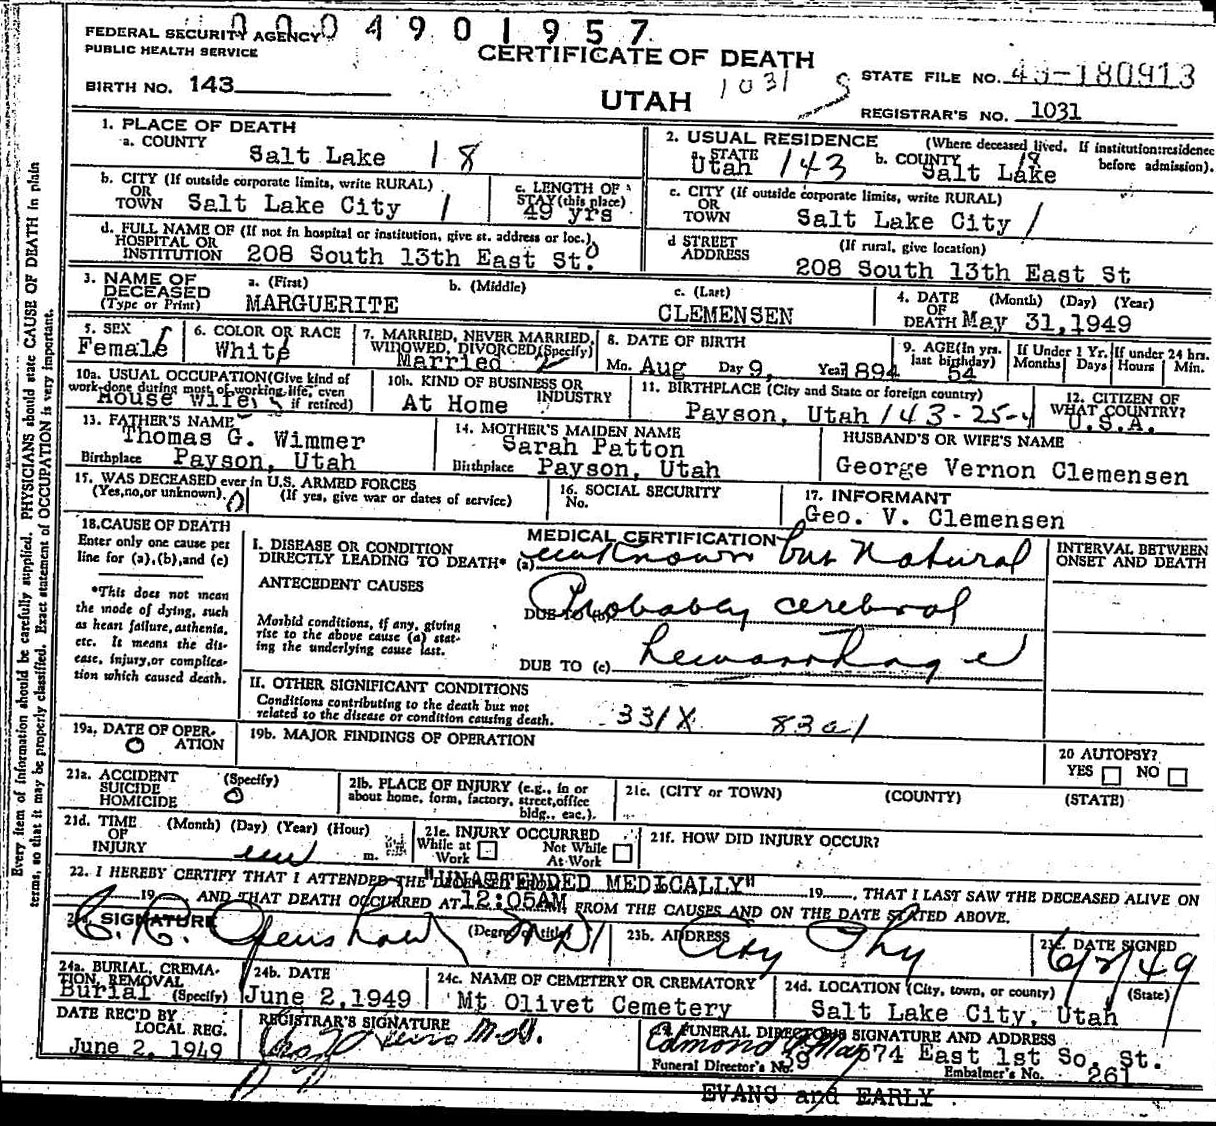 0004901957
FEDERAL SECURITY AGENCY
PUBLIC HEALTH SERVICE
CERTIFICATE OF DEATH
STATE FILE NO. 49-180913
BIRTH NO. 143
UTAH
1031
REGISTRAR'S NO. 1031
1. PLACE OF DEATH
a. COUNTY
Salt Lake 18
2. USUAL RESIDENCE (Where deceased lived. If institution:residence before admission).
a. STATE Utah 143 b. COUNTY Salt Lake 18
b. CITY (If outside corporate limits, write RURAL)
OR
TOWN Salt Lake City 1
c. LENGTH OF
STAY (this place)
49 yrs
c. CITY (If outside corporate limits, write RURAL)
OR
TOWN Salt Lake City 1
d. FULL NAME OF (If not in hospital or institution, give st. address or loc.)
HOSPITAL OR
INSTITUTION 208 South 13th East St. 0
d STREET
ADDRESS
(If rural, give location)
208 South 13th East St
3. NAME OF
DECEASED
(Type or Print)
a. (First)
MARGUERITE
b. (Middle)
c. (Last)
CLEMENSEN
4. DATE (Month) (Day) (Year)
OF
DEATH May 31, 1949
5. SEX
Female
6. COLOR OR RACE
White
7. MARRIED, NEVER MARRIED,
WIDOWED, DIVORCED (Specify)
Married
8. DATE OF BIRTH
Mo. Aug Day 9, Year 1894
9. AGE (In yrs.
last birthday)
54
If Under 1 Yr.
Months Days
If under 24 hrs.
Hours Min.
10a. USUAL OCCUPATION (Give kind of
work done during most of working life, even
if retired)
House wife
10b. KIND OF BUSINESS OR
INDUSTRY
At Home
11. BIRTHPLACE (City and State or foreign country)
Payson, Utah 143-25-
12. CITIZEN OF
WHAT COUNTRY?
U.S.A.
13. FATHER'S NAME
Thomas G. Wimmer
Birthplace Payson, Utah
14. MOTHER'S MAIDEN NAME
Sarah Patton
Birthplace Payson, Utah
HUSBAND'S OR WIFE'S NAME
George Vernon Clemensen
15. WAS DECEASED ever in U.S. ARMED FORCES
(Yes,no,or unknown). 0 (If yes, give war or dates of service)
16. SOCIAL SECURITY
No.
17. INFORMANT
Geo. V. Clemensen
18. CAUSE OF DEATH
Enter only one cause per
line for (a), (b), and (c)
*This does not mean
the mode of dying, such
as heart failure, asthenia,
etc. It means the dis-
ease, injury, or complica-
tion which caused death.
MEDICAL CERTIFICATION
I. DISEASE OR CONDITION
DIRECTLY LEADING TO DEATH* (a) unknown but natural
ANTECEDENT CAUSES
Morbid conditions, if any, giving
rise to the above cause (a) stat-
ing the underlying cause last.
DUE TO (b) Probably cerebral
DUE TO (c) hemorrhage
INTERVAL BETWEEN
ONSET AND DEATH
II. OTHER SIGNIFICANT CONDITIONS
Conditions contributing to the death but not
related to the disease or condition causing death.
331X 83a1
19a. DATE OF OPER-
ATION
0
19b. MAJOR FINDINGS OF OPERATION
20 AUTOPSY?
YES NO
21a. ACCIDENT (Specify)
SUICIDE
HOMICIDE 0
21b. PLACE OF INJURY (e.g., in or
about home, form, factory, street, office
bldg., eac.).
21c. (CITY or TOWN) (COUNTY) (STATE)
21d. TIME (Month) (Day) (Year) (Hour)
OF
INJURY m.
21e. INJURY OCCURRED
While at Work Not While At Work
21f. HOW DID INJURY OCCUR?
22. I HEREBY CERTIFY THAT I ATTENDED THE DECEASED FROM "UNATTENDED MEDICALLY" 19 , THAT I LAST SAW THE DECEASED ALIVE ON
19 AND THAT DEATH OCCURRED AT 12:05AM FROM THE CAUSES AND ON THE DATE STATED ABOVE.
SIGNATURE (Degree or title) MD
23b. ADDRESS City Phy
23c. DATE SIGNED
6/2/49
24a. BURIAL, CREMA-
TION, REMOVAL
Burial (Specify)
24b. DATE
June 2, 1949
24c. NAME OF CEMETERY OR CREMATORY
Mt Olivet Cemetery
24d. LOCATION (City, town, or county) (State)
Salt Lake City, Utah
DATE REC'D BY
LOCAL REG.
June 2, 1949
REGISTRAR'S SIGNATURE
M.D.
FUNERAL DIRECTOR'S SIGNATURE AND ADDRESS
574 East 1st So. St.
Funeral Director's No. 39 Embalmer's No. 261
EVANS and EARLY
Every item of information should be carefully supplied. PHYSICIANS should state CAUSE OF DEATH in plain
terms, so that it may be properly classified. Exact statement of OCCUPATION is very important.